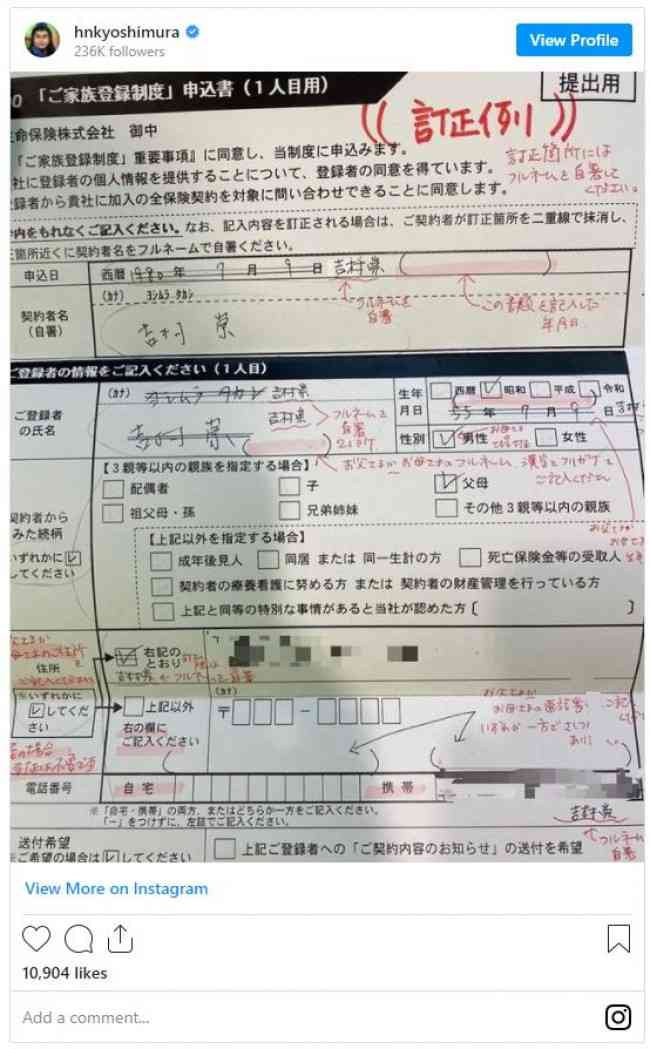 hnkyoshimura
236K followers
View Profile
「ご家族登録制度」申込書（1人目用）
提出用
((訂正例))
生命保険株式会社 御中
『ご家族登録制度』重要事項』に同意し、当制度に申込みます。
社に登録者の個人情報を提供することについて、登録者の同意を得ています。
録者から貴社に加入の全保険契約を対象に問い合わせできることに同意します。
訂正箇所には
フルネームを自署して
ください。
内をもれなくご記入ください。なお、記入内容を訂正される場合は、ご契約者が訂正箇所を二重線で抹消し、
箇所近くに契約者名をフルネームで自署ください。
申込日
西暦1980年 7月 9日 吉村崇
契約者名
（自署）
（カナ） ヨシムラ タカシ
吉村 崇
フルネームを
自署
この書類を記入した
年月日
ご登録者の情報をご記入ください（1人目）
ご登録者
の氏名
（カナ） ヨシムラ タカシ 吉村崇
吉村 崇 吉村崇
フルネームを
自署
2ヶ所
生年
月日
西暦 昭和 平成 令和
55年 7月 9日
性別
男性 女性
お父さまかお母さまのフルネーム、漢字とフリガナを
ご記入ください
【3親等以内の親族を指定する場合】
配偶者 子 父母
祖父母・孫 兄弟姉妹 その他3親等以内の親族
契約者から
みた続柄
いずれかに
してください
【上記以外を指定する場合】
成年後見人 同居 または 同一生計の方 死亡保険金等の受取人
契約者の療養看護に努める方 または 契約者の財産管理を行っている方
上記と同等の特別な事情があると当社が認めた方〔 〕
住所
※いずれかに
してくだ
さい
右記の
とおり
上記以外
右の欄に
ご記入ください
（カナ）
〒 －
電話番号
自宅
携帯
※「自宅・携帯」の両方、またはどちらか一方をご記入ください。
「－」をつけずに、左詰でご記入ください。
吉村崇
フルネーム
自署
送付希望
ご希望の場合は してください
上記ご登録者への「ご契約内容のお知らせ」の送付を希望
View More on Instagram
10,904 likes
Add a comment...